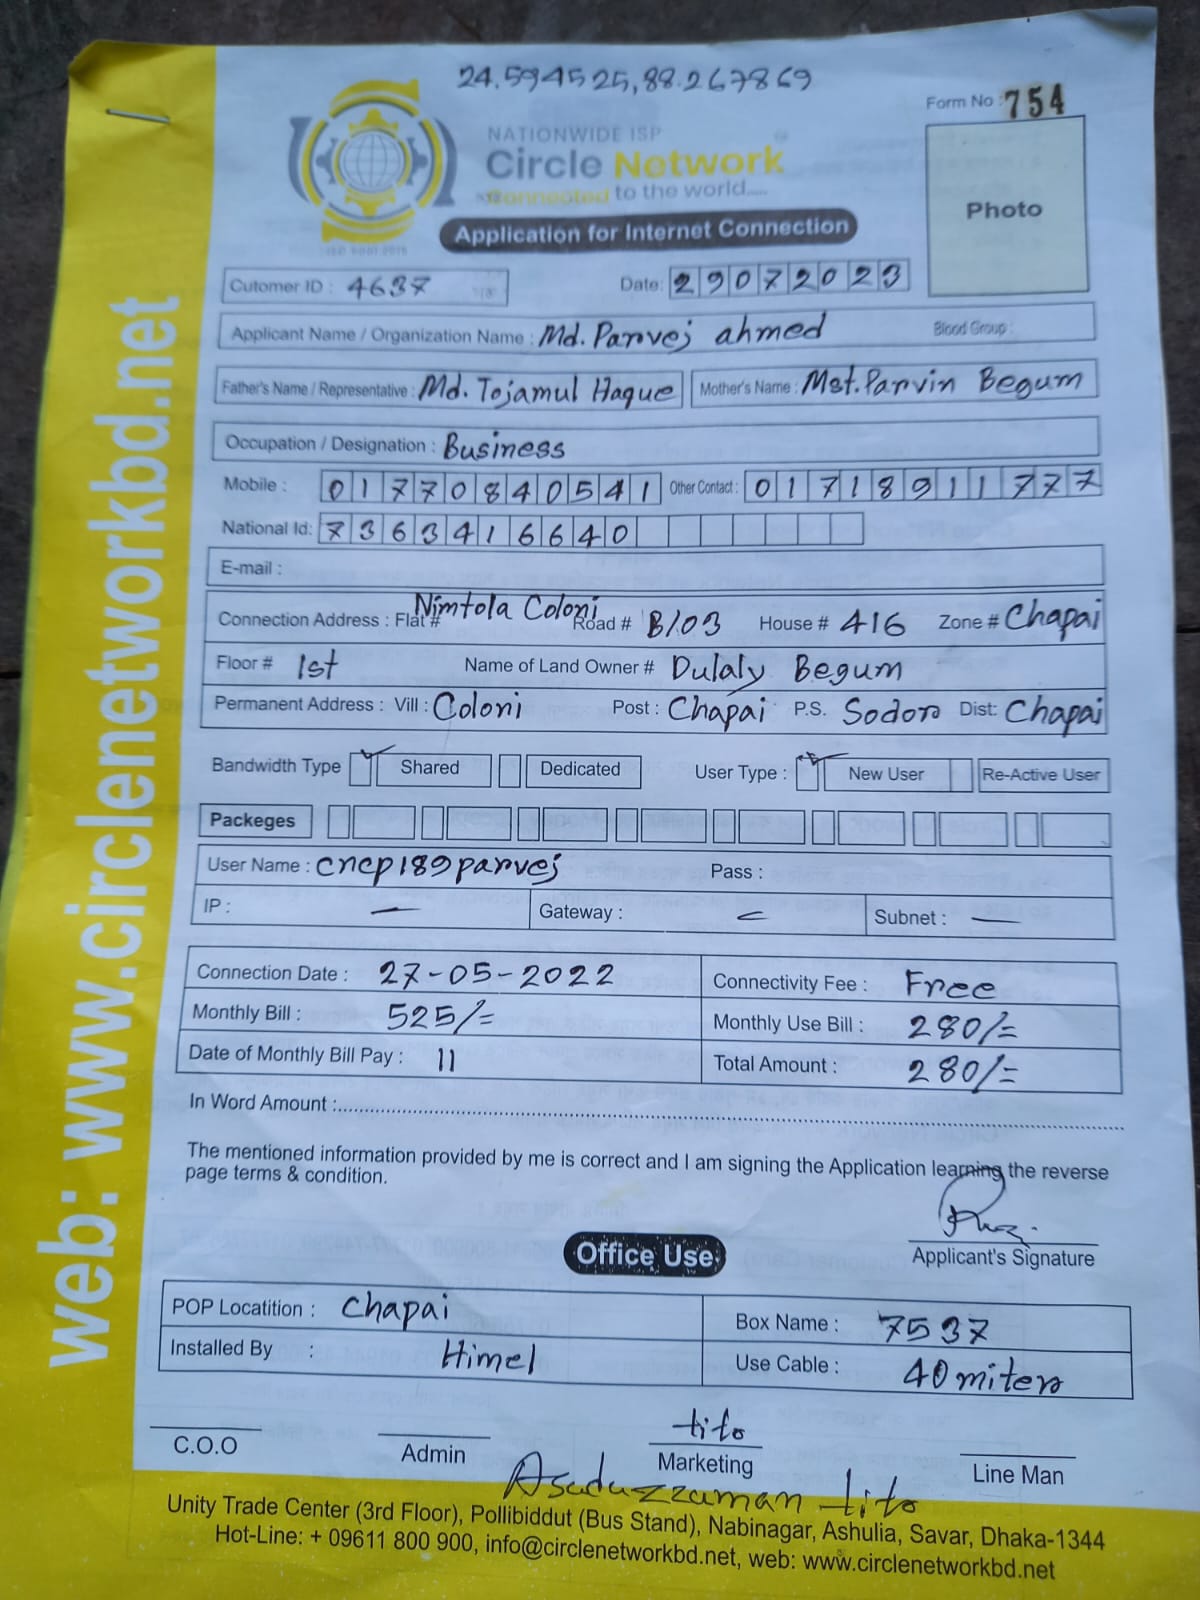 24.594525,88.267869
Form No : 754
NATIONWIDE ISP
Circle Network
Connected to the world.....
Photo
Application for Internet Connection
ISO 9001:2015
Cutomer ID : 4637
Date: 29072023
Applicant Name / Organization Name : Md. Parvej ahmed Blood Group :
Father's Name / Representative : Md. Tojamul Haque Mother's Name : Mst. Parvin Begum
Occupation / Designation : Business
Mobile : 01770840541 Other Contact : 01718911777
National Id: 7363416640
E-mail :
Connection Address : Flat # Nimtola Coloni Road # B/03 House # 416 Zone # Chapai
Floor # 1st Name of Land Owner # Dulaly Begum
Permanent Address : Vill : Coloni Post : Chapai P.S. Sodor Dist: Chapai
Bandwidth Type Shared Dedicated User Type : New User Re-Active User
Packeges
User Name : cncp189parvej Pass :
IP : — Gateway : — Subnet : —
Connection Date : 27-05-2022 Connectivity Fee : Free
Monthly Bill : 525/= Monthly Use Bill : 280/=
Date of Monthly Bill Pay : 11 Total Amount : 280/=
In Word Amount :
The mentioned information provided by me is correct and I am signing the Application learning the reverse
page terms & condition.
Applicant's Signature
Office Use
POP Locatition : Chapai Box Name : 7537
Installed By : Himel Use Cable : 40 miters
tito
C.O.O Admin Marketing Line Man
Asaduzzaman tito
Unity Trade Center (3rd Floor), Pollibiddut (Bus Stand), Nabinagar, Ashulia, Savar, Dhaka-1344
Hot-Line: + 09611 800 900, info@circlenetworkbd.net, web: www.circlenetworkbd.net
web: www.circlenetworkbd.net